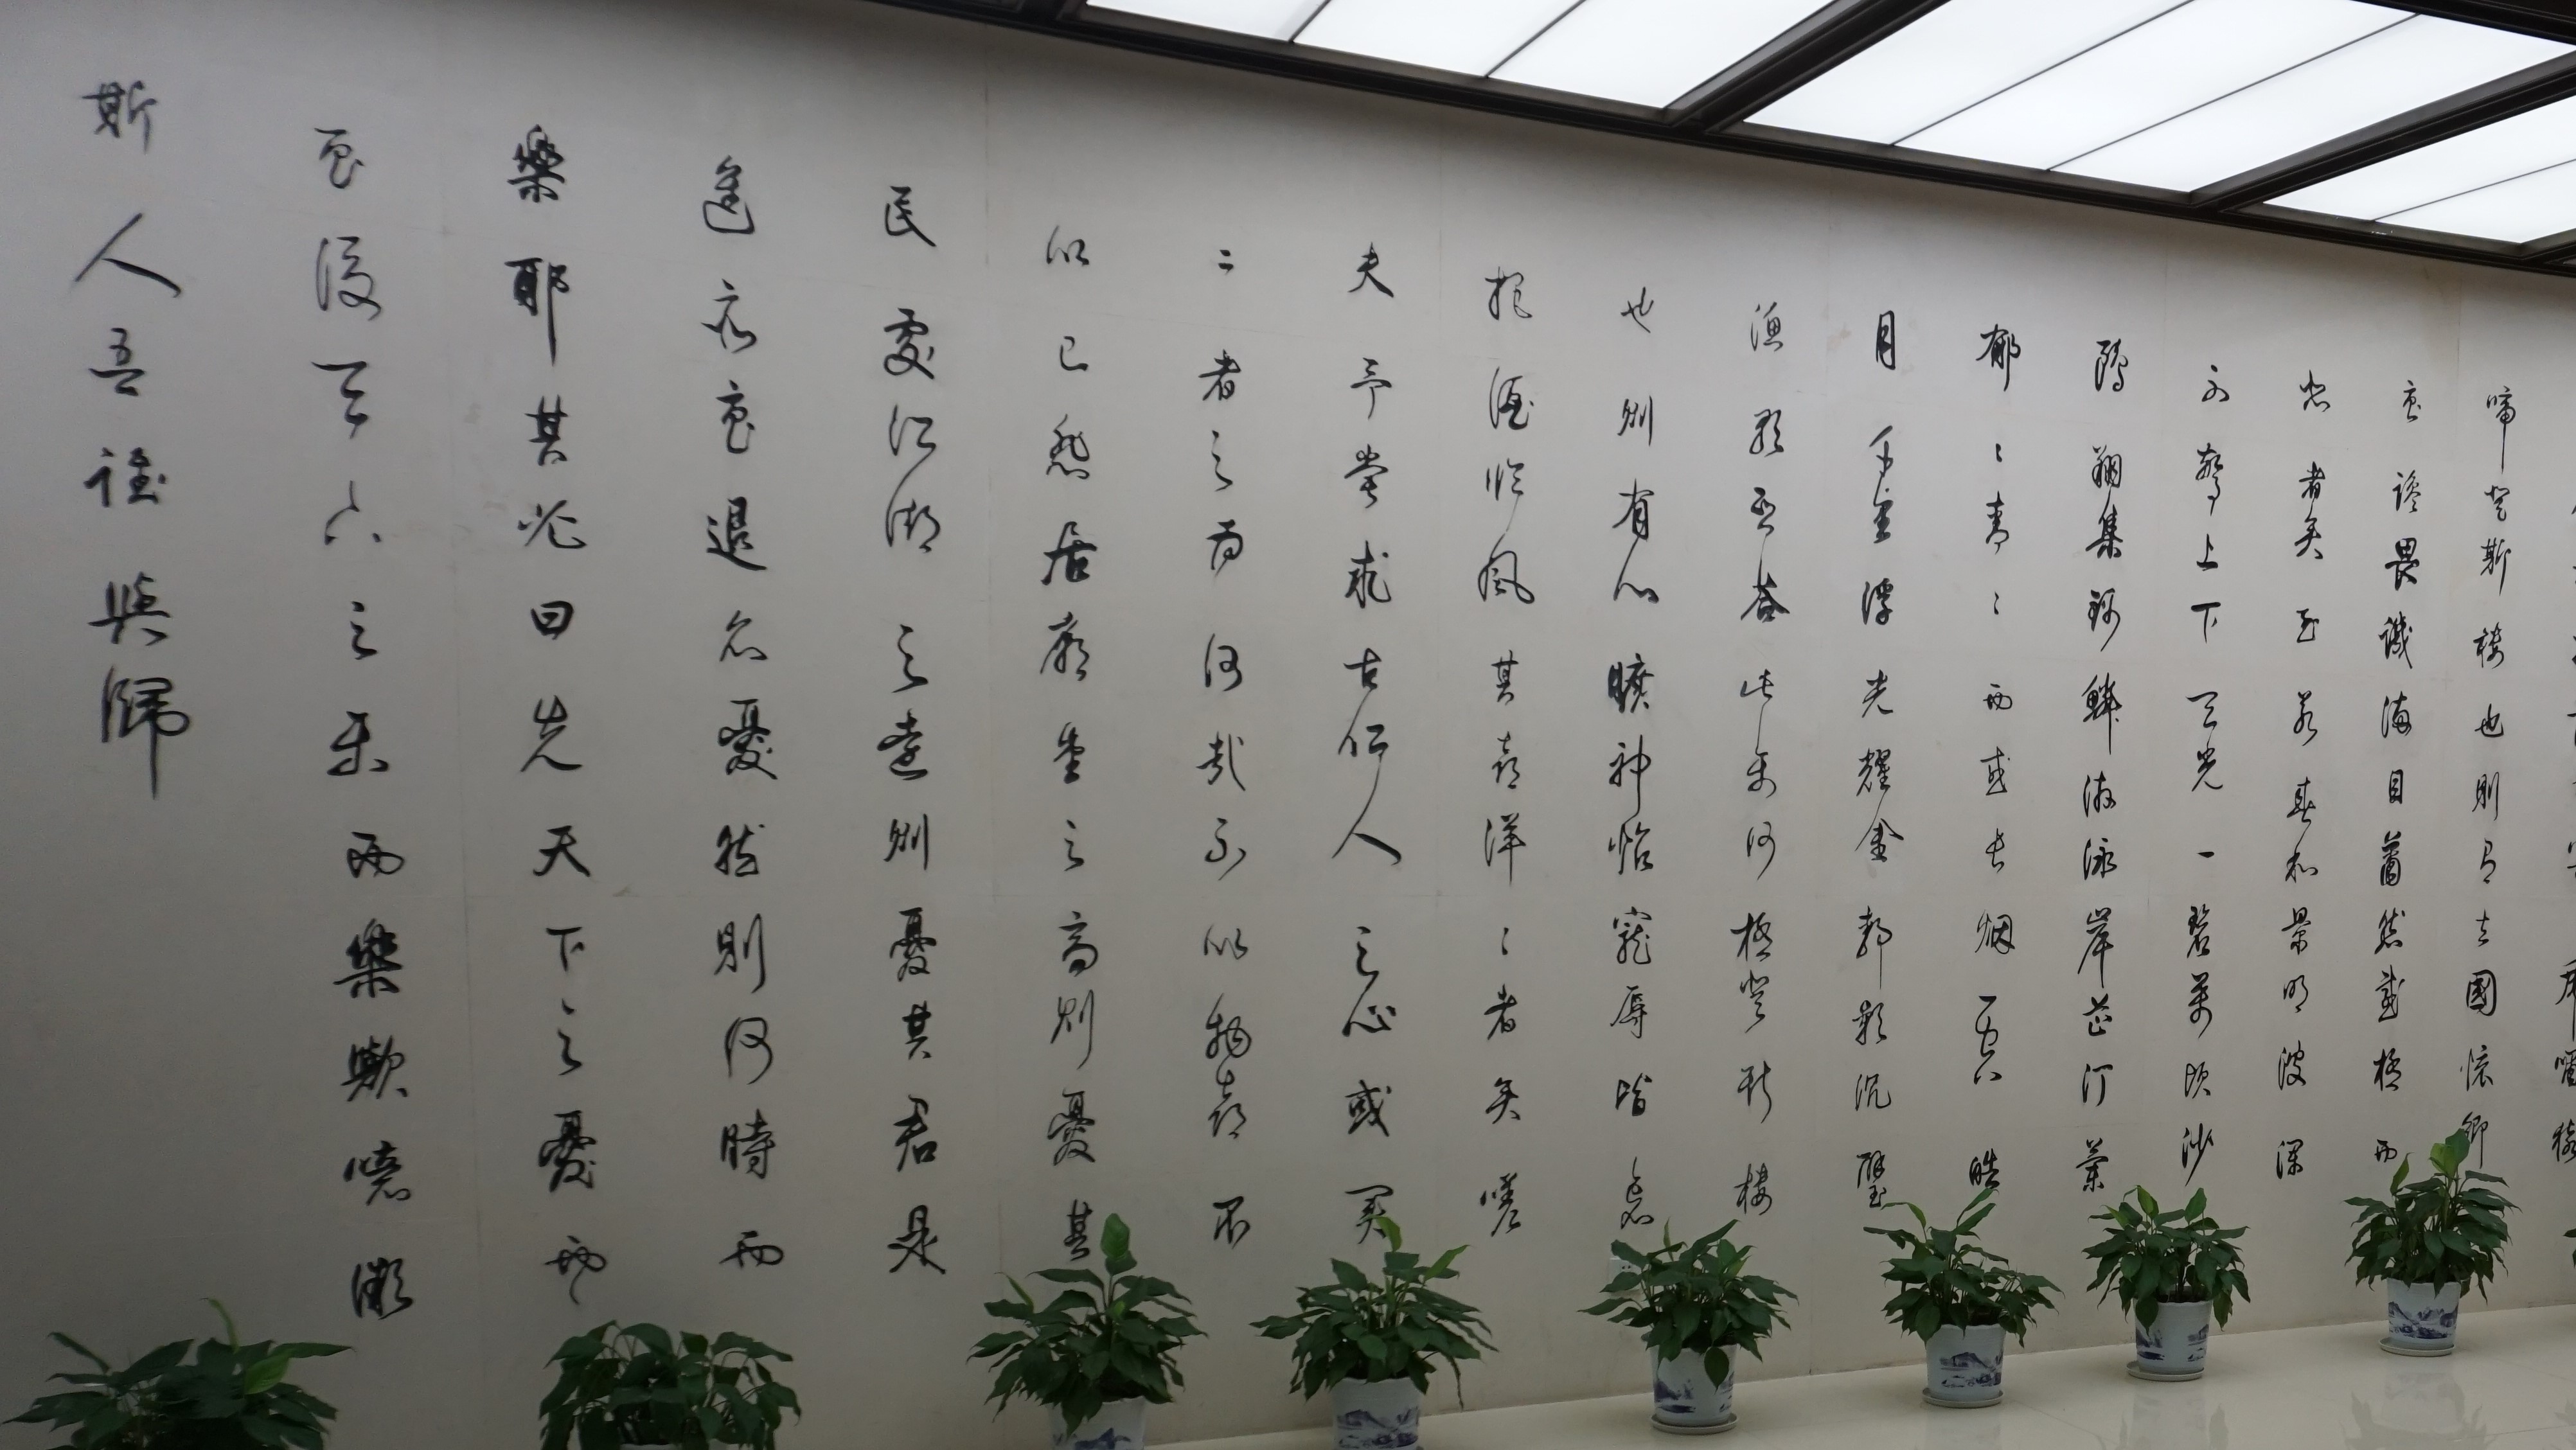 虎嘯猿
啼登斯樓也則有去國懷鄉
憂讒畏譏滿目蕭然感極而
悲者矣至若春和景明波瀾
不驚上下天光一碧萬頃沙
鷗翔集錦鱗游泳岸芷汀蘭
郁々青々而或長烟一空皓
月千里浮光耀金靜影沉璧
漁歌互答此樂何極登斯樓
也則有心曠神怡寵辱皆忘
把酒臨風其喜洋々者矣嗟
夫予嘗求古仁人之心或異
二者之為何哉不以物喜不
以己悲居廟堂之高則憂其
民處江湖之遠則憂其君是
進亦憂退亦憂然則何時而
樂耶其必曰先天下之憂而
憂後天下之樂而樂歟噫微
斯人吾誰與歸